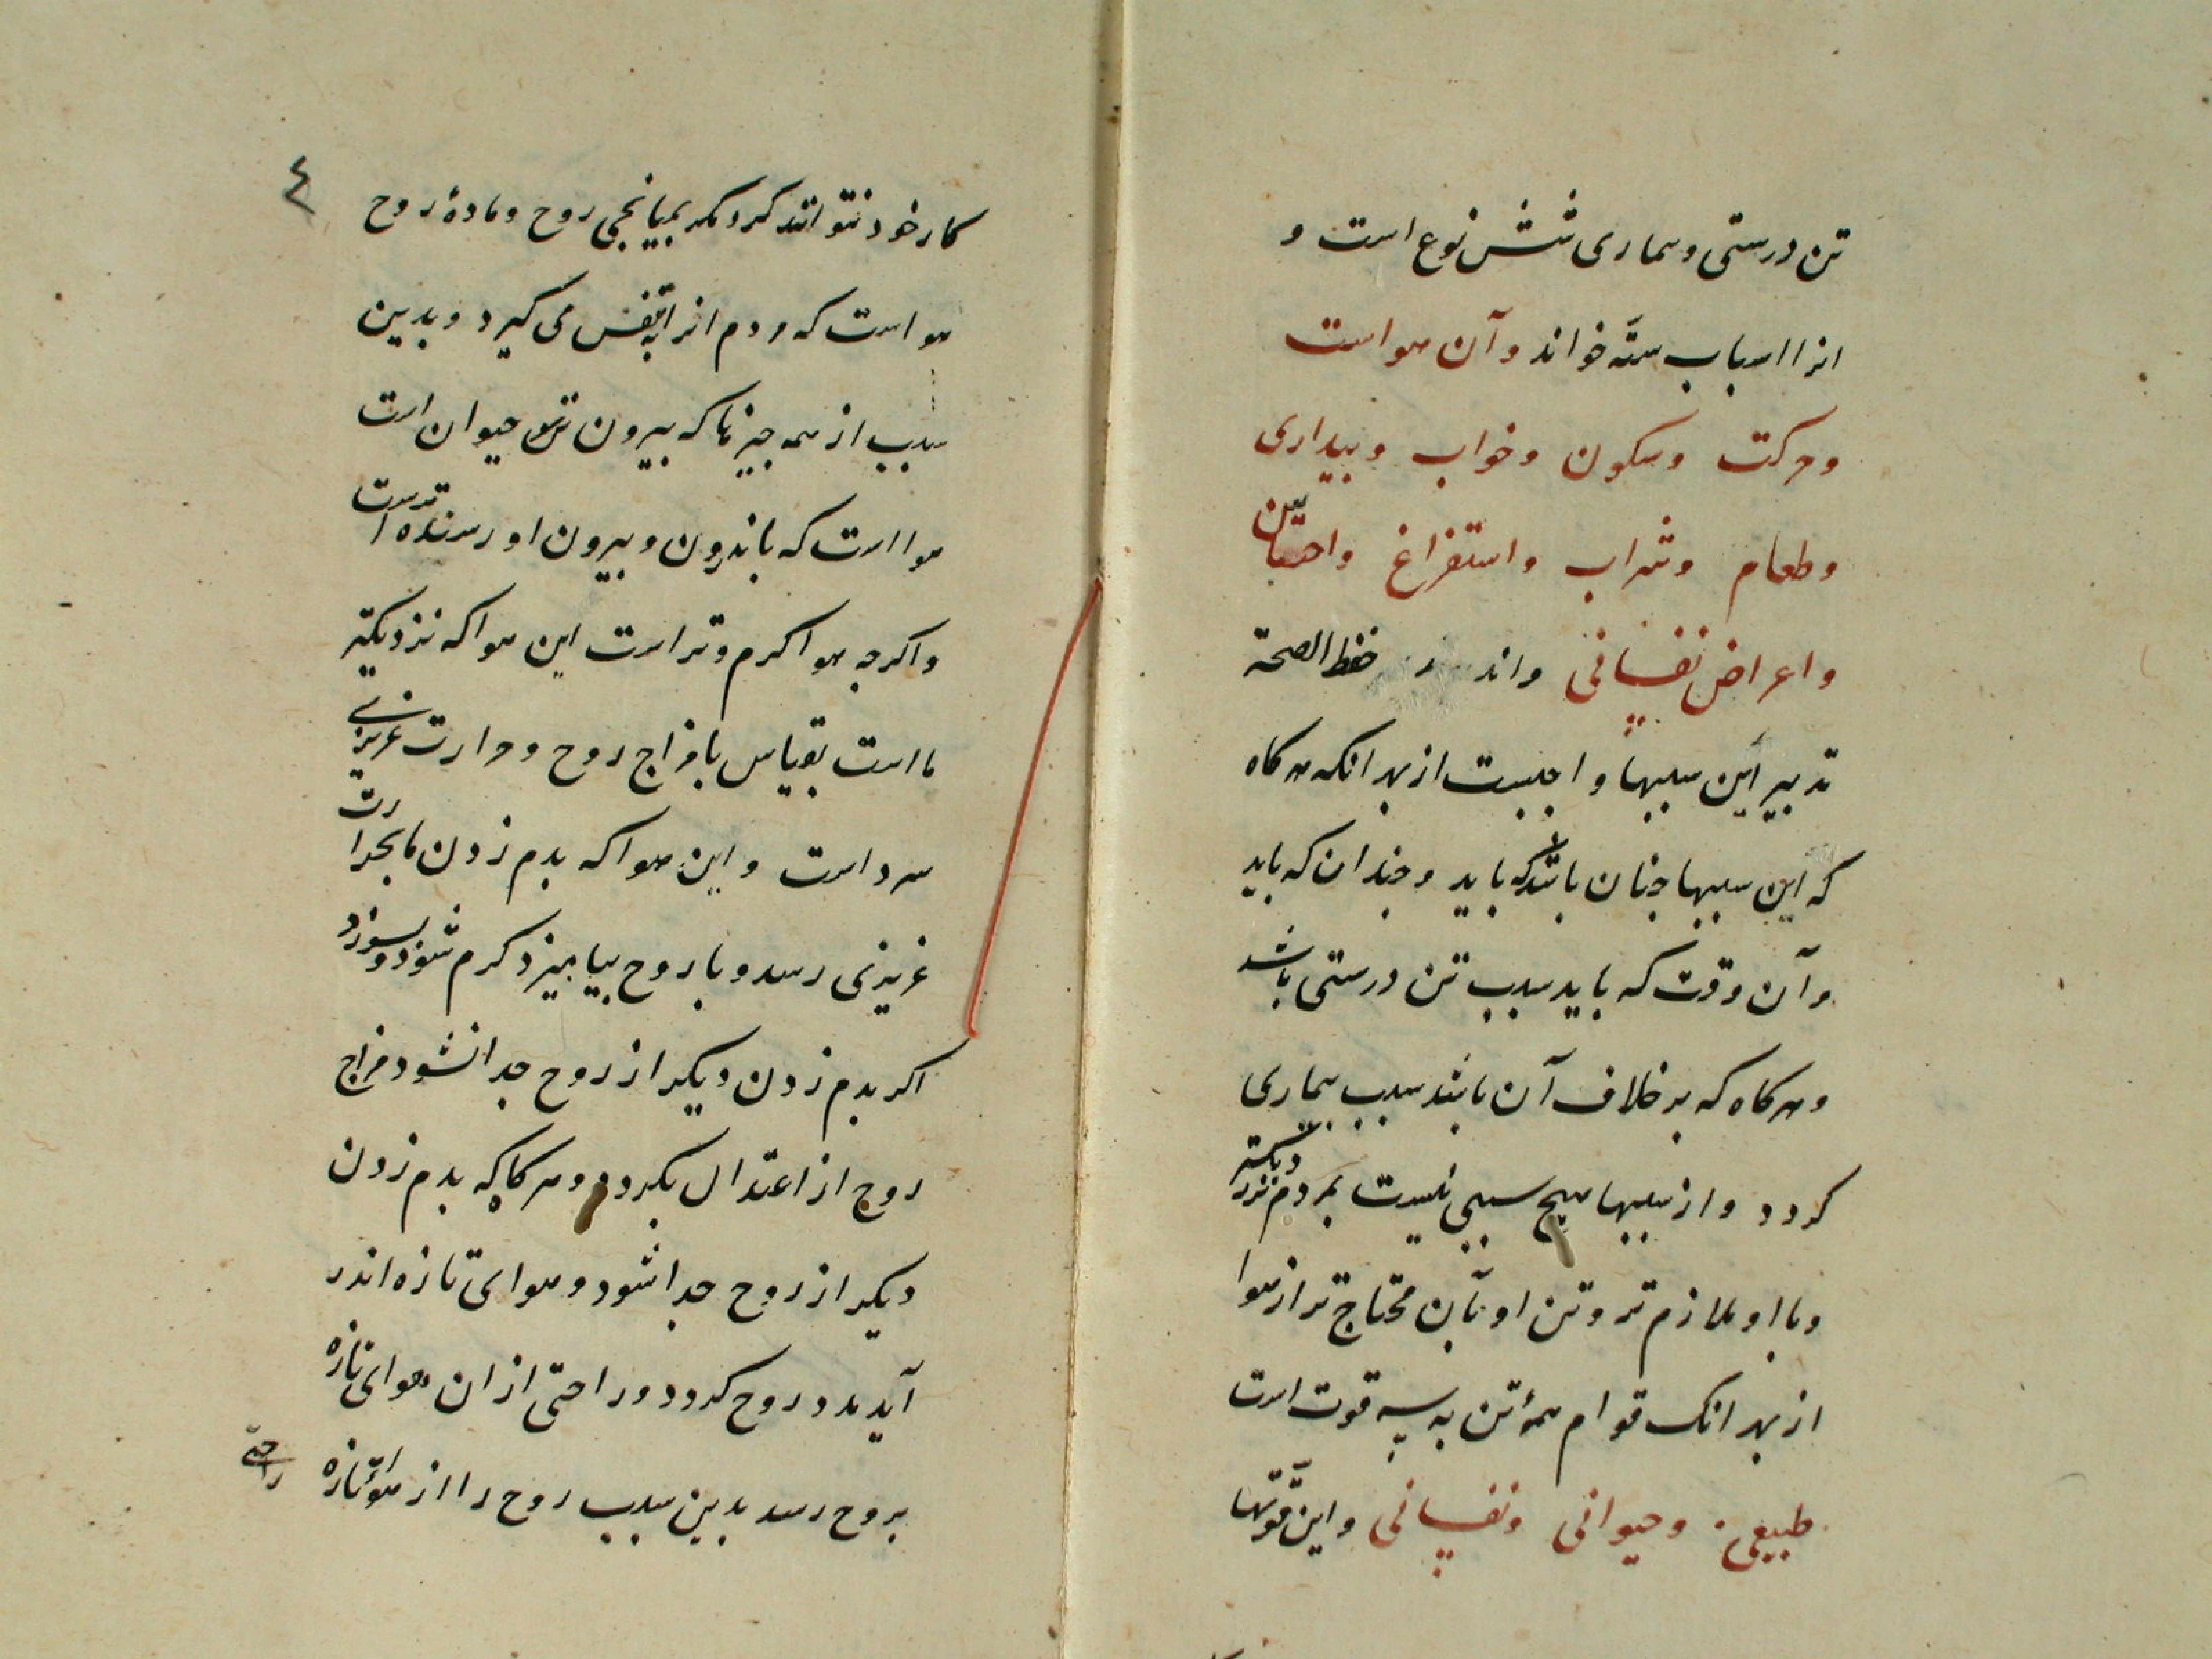 تن درستی و بیماری شش نوع است و
انرا اسباب ستّه خواند و آن هواست
و حرکت و سکون و خواب و بیداری
و طعام و شراب و استفراغ و احتباس
و اعراض نفسانی و اندر حفظ الصحة
تدبیر این سببها واجبست از بهر انکه هرکاه
که این سببها جنان باشد که باید و جندان که باید
و آن وقت که باید سبب تن درستی باشد
و هرکاه که بر خلاف آن باشد سبب بیماری
کردد و از سببها هیج سببی نیست بمردم نزدیکتر
و با او ملازم تر و تن او بآن محتاج تر از هوا
از بهر انک قوام همۀ تن به سه قوت است
طبیعی و حیوانی و نفسانی و این قوّتها
٤
کار خود نتوانند کرد مکر بمیانجی روح و مادۀ روح
هوا است که مردم انرا بنفس می کیرد و بدین
سبب از همه جیزها که بیرون تن حیوان است
هوا است که باندرون و بیرون او رسنده تر است
و اکرجه هوا کرم و تر است این هوا که نزدیکتر
ما است بقیاس با مزاج روح و حرارت غریزی
سرد است و این هوا که بدم زدن ما بحرارت
غریزی رسد و با روح بیامیزد کرم شود و بسوزد
اکر بدم زدن دیکر از روح جدا نشود مزاج
روح از اعتدال بکردد و هرکاه که بدم زدن
دیکر از روح جدا شود و هوای تازه اندر
آید مدد روح کردد و راحتی از ان هوای تازه
بروح رسد بدین سبب روح را از هوای تازه
راحتی